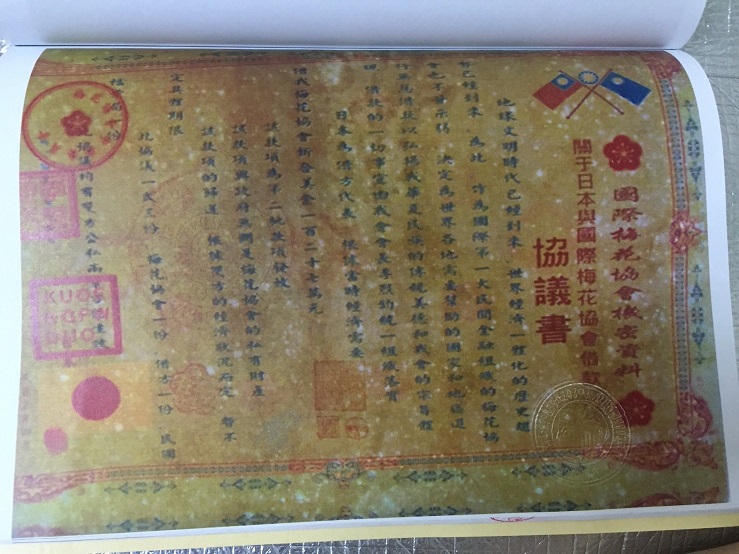 國際梅花協會機密資料
關于日本與國際梅花協會借款
協議書
地球文明時代已經到來、世界經濟一體化的歷史趨
勢已經到來、為此、作為國際第一大民間金融組織的梅花協
會也不甘示弱 決定為世界各地需要幫助的國家和地區進
行無息借款以弘揚我華夏民族的傳統美德和我會的宗旨體
現、借款的一切事宜由我會會長李烈鈞統一組織落實
日本為借方代表、根據當時經濟需要
借我梅花協會折合美金一百二十七萬元
該款項為第二批款項發放
該款項與政府無關是梅花協會的私有財產
該款項的歸還 根據雙方的經濟狀況而定 暫不
定具體期限
此協議一式三份 梅花協會一份 借方一份、民國
一份
協議均有雙方公私兩章
KUO